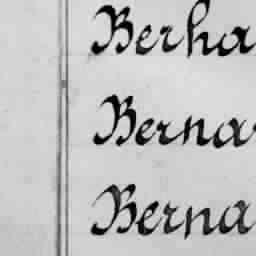 Berha
Berna
Berna